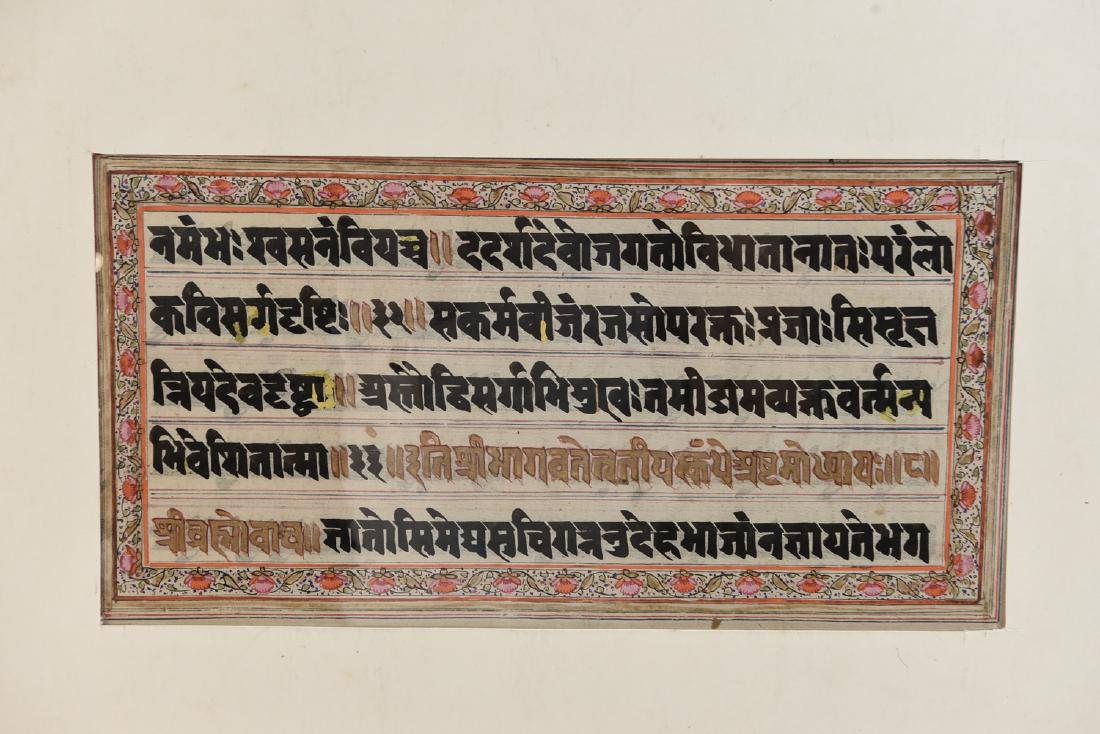 नमंभः श्वसनं वियच्च॥ ददर्शदेवोजगतोविधातानातःपरंलो
कविसर्गदृष्टिः॥३२॥सकर्मबीजंरजसोपरक्तःप्रजाःसिसृक्ष
न्नियदेवदृष्ट्वा॥अस्तौद्विसर्गाभिमुखःतमीड्यमव्यक्तवर्त्मन्य
भिवेशितात्मा॥३३॥इतिश्रीभागवतेतृतीयस्कंधेअष्टमोध्यायः॥८॥
श्रीब्रह्मोवाच॥ज्ञातोसिमेद्यसुचिरान्ननुदेहभाजांनज्ञायतेभग